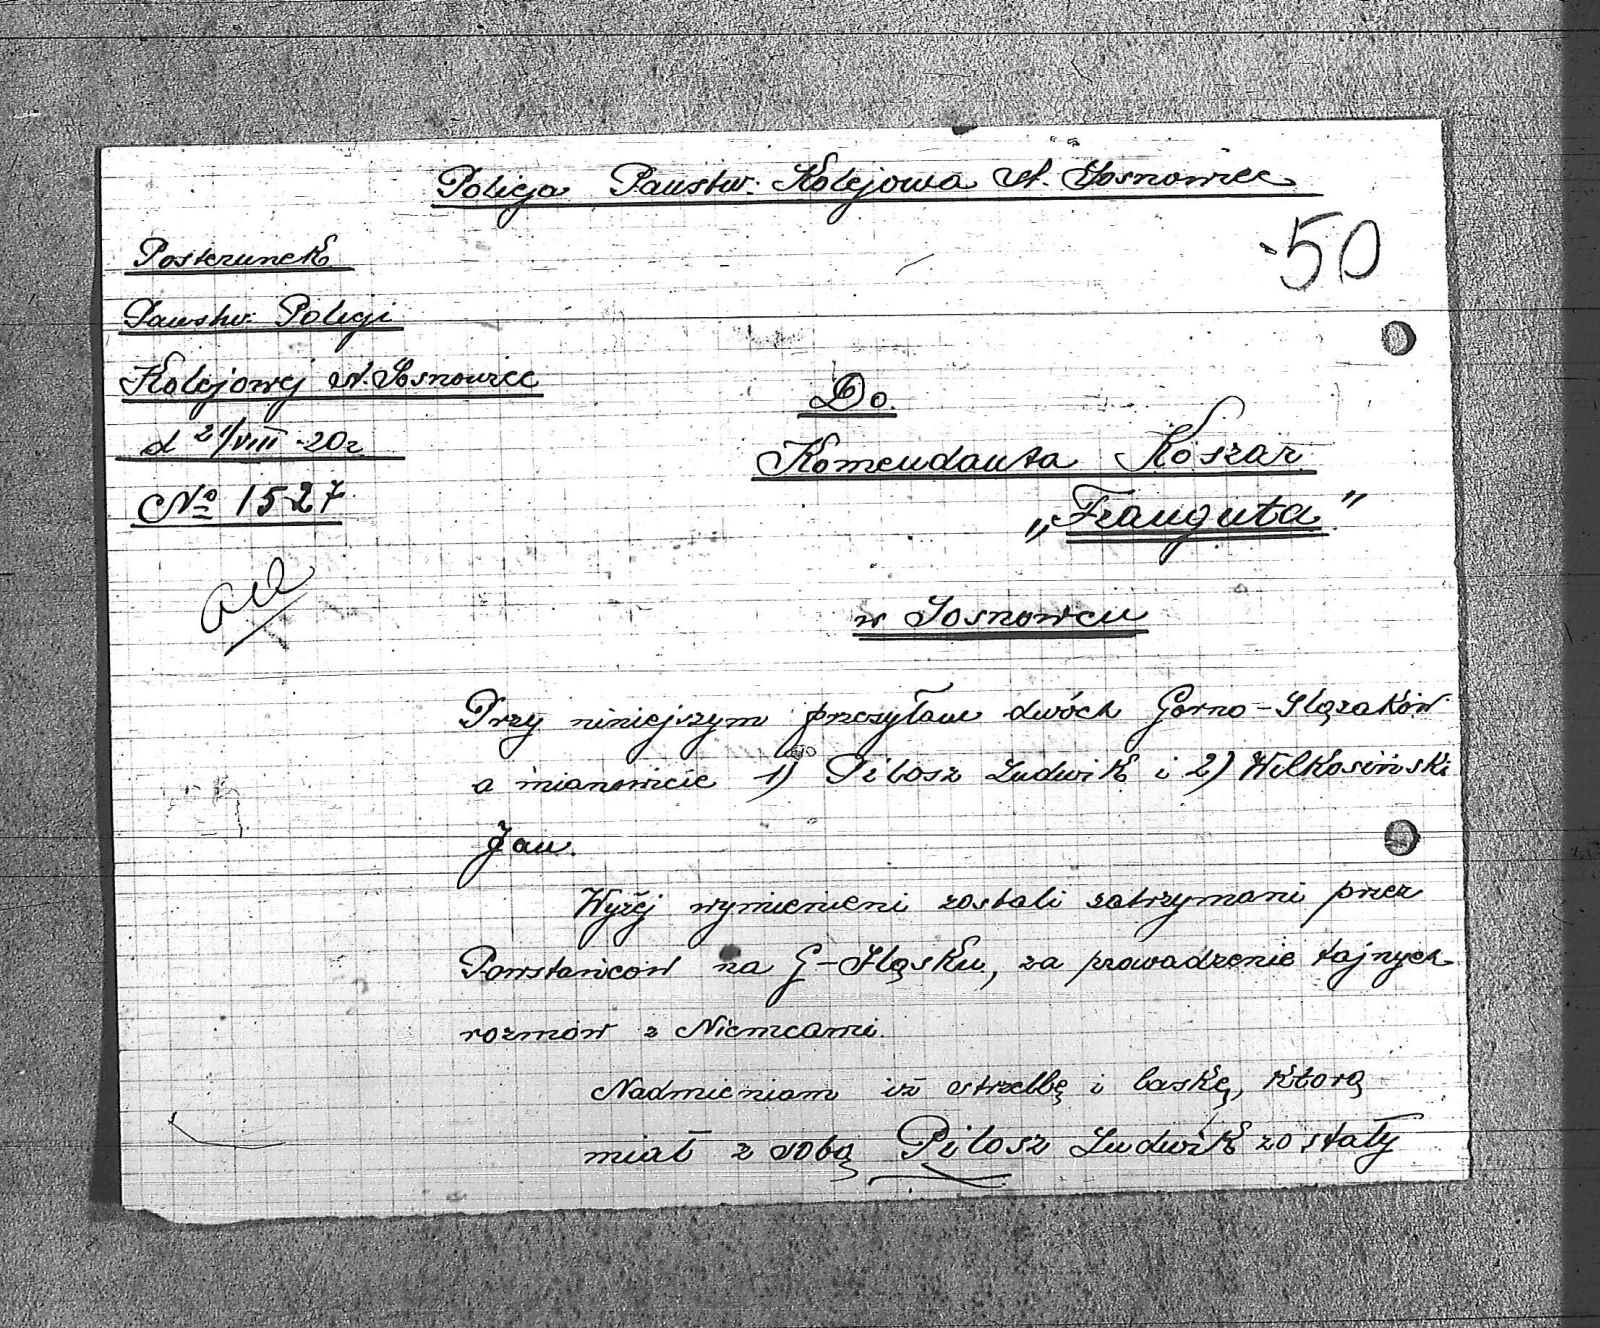 Policja Państw. Kolejowa st. Sosnowiec
50
Posterunek
Państw. Policji
Kolejowej st. Sosnowiec
d 21/VIII -20 r
No 1527
Do
Komendanta Koszar
„Trauguta”
w Sosnowcu
Przy niniejszym przesyłam dwóch Górno-Slązaków
a mianowicie 1) Pilosz Ludwik i 2) Wilkosiński
Jan.
Wyżej wymienieni zostali zatrzymani przez
Powstańców na G-Sląsku, za prowadzenie tajnych
rozmów z Niemcami.
Nadmieniam iż strzelbę i laskę, którą
miał z sobą Pilosz Ludwik zostały